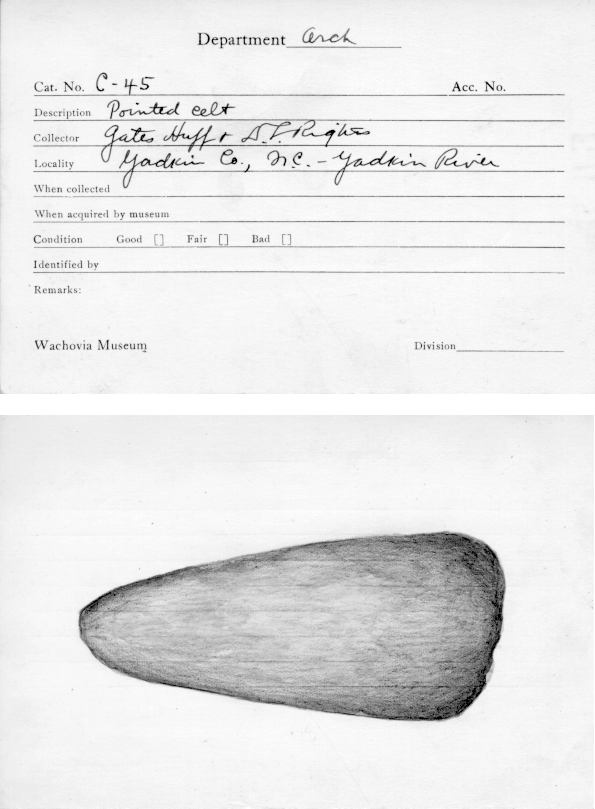 Department Arch
Cat. No. C-45 Acc. No.
Description Pointed celt
Collector Gates Huff + D.L. Rights
Locality Yadkin Co., N.C. - Yadkin River
When collected
When acquired by museum
Condition Good [] Fair [] Bad []
Identified by
Remarks:
Wachovia Museum Division